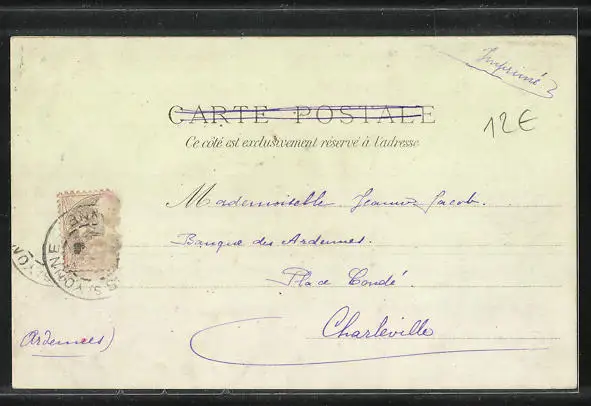 Imprimé
CARTE POSTALE
12€
Ce côté est exclusivement réservé à l'adresse
Mademoiselle Jeanne Jacob
Banque des Ardennes.
Place Condé.
Charleville
Ardennes)
YONNE